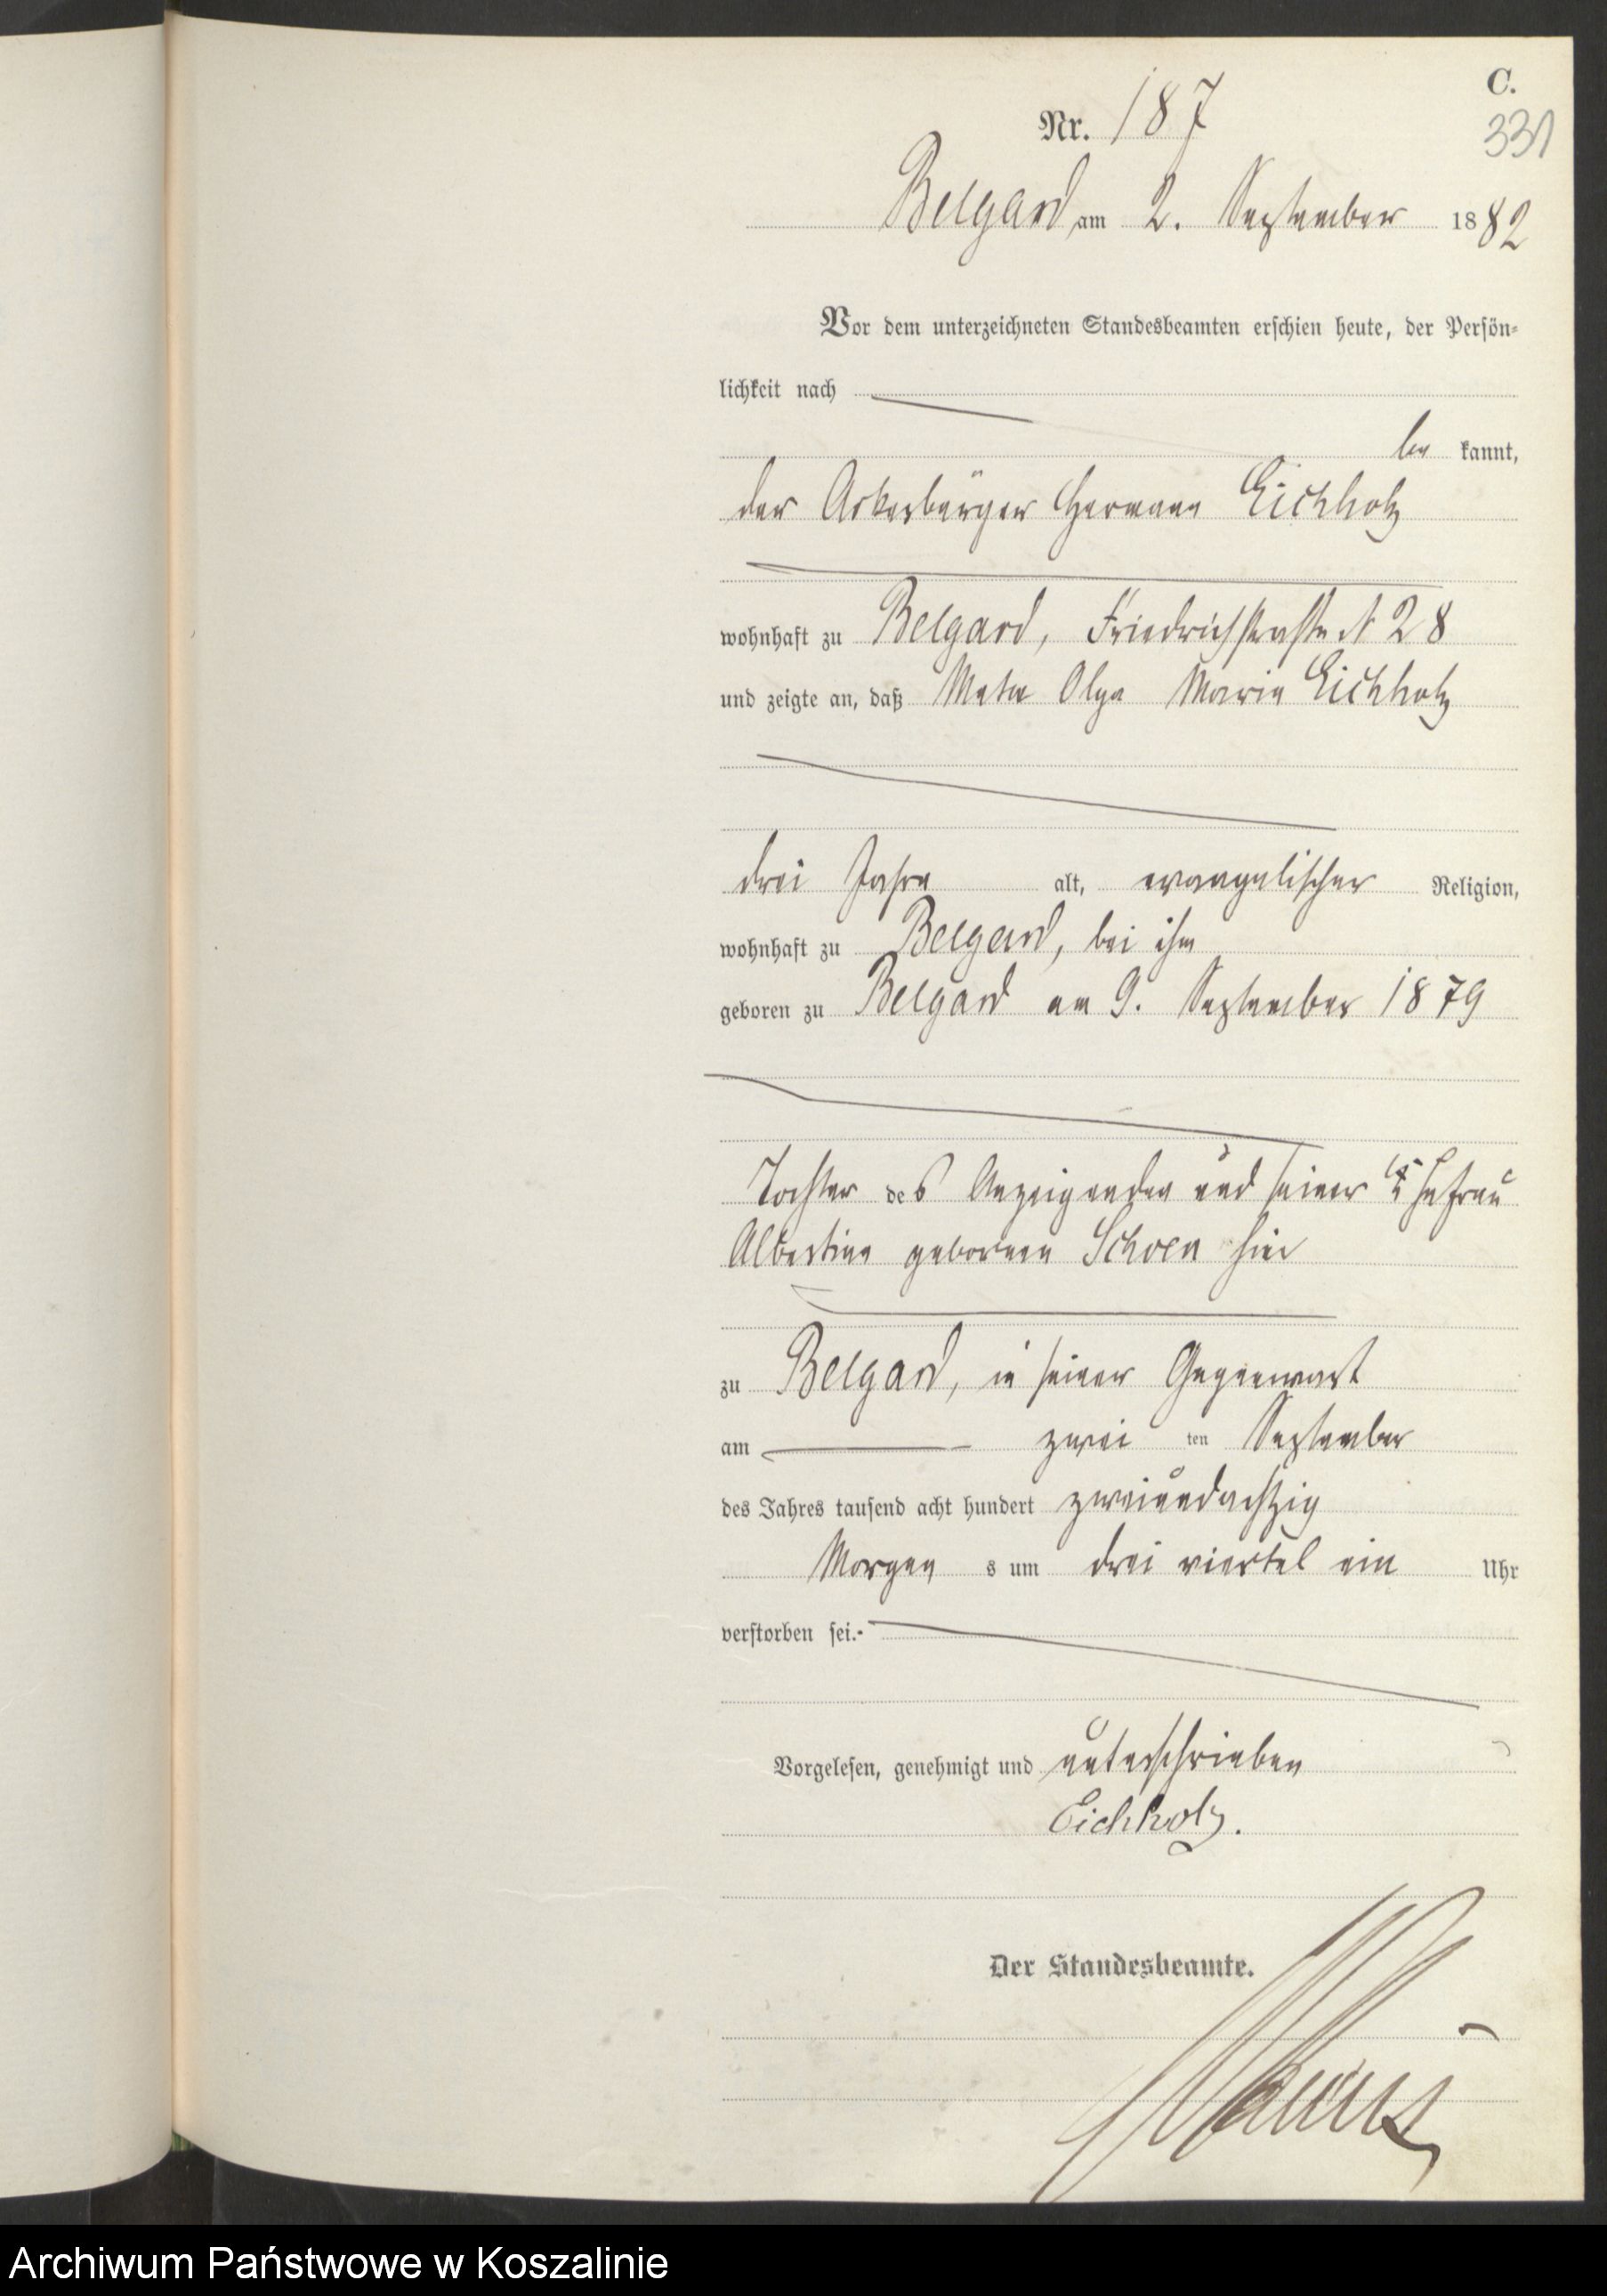 C.
331
Nr. 187
Belgard am 2. September 1882
Vor dem unterzeichneten Standesbeamten erschien heute, der Persön-
lichkeit nach
be kannt,
der Ackerbürger Hermann Eichholz
wohnhaft zu Belgard, Friedrichstraße N 28
und zeigte an, daß Meta Olga Maria Eichholz
drei Jahre alt, evangelischer Religion,
wohnhaft zu Belgard, bei ihm
geboren zu Belgard am 9. September 1879
Tochter des Anzeigenden und seiner Ehefrau
Albertine geborenen Schoen hier
zu Belgard, in seiner Gegenwart
am zwei ten September
des Jahres tausend acht hundert zweiundachtzig
Morgen s um drei viertel ein Uhr
verstorben sei.-
Vorgelesen, genehmigt und unterschrieben
Eichholz.
Der Standesbeamte.
Archiwum Państwowe w Koszalinie